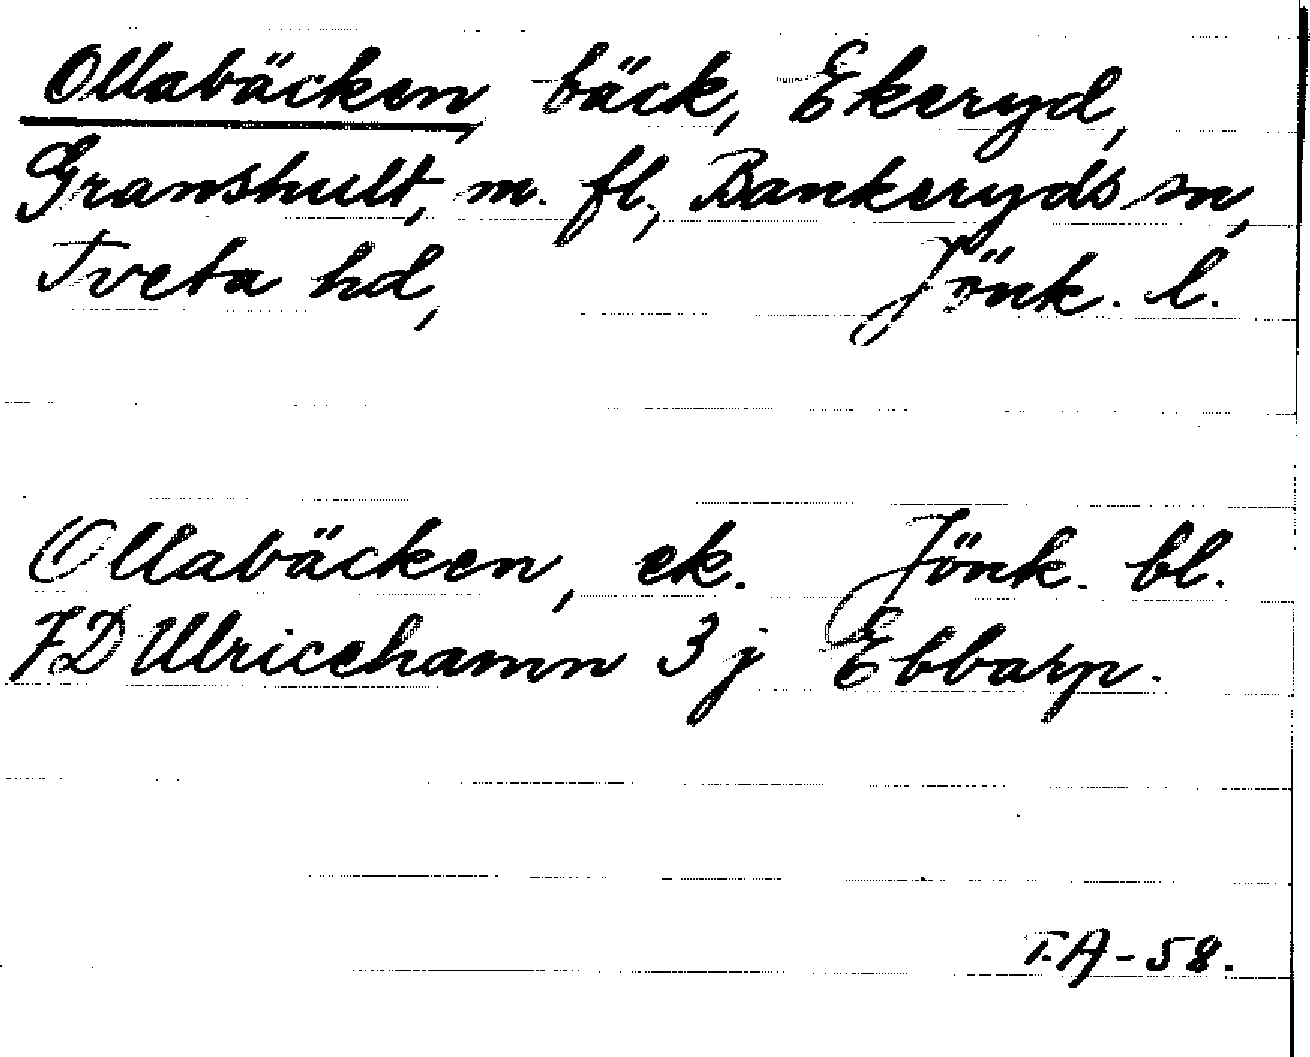 Ollabäcken, bäck, Ekeryd,
Granshult, m. fl., Bankeryds sn,
Tveta hd, Jönk. l.
Ollabäcken, ek. Jönk. bl.
7D Ulricehamn 3 j Ebbarp.
T.A-58.